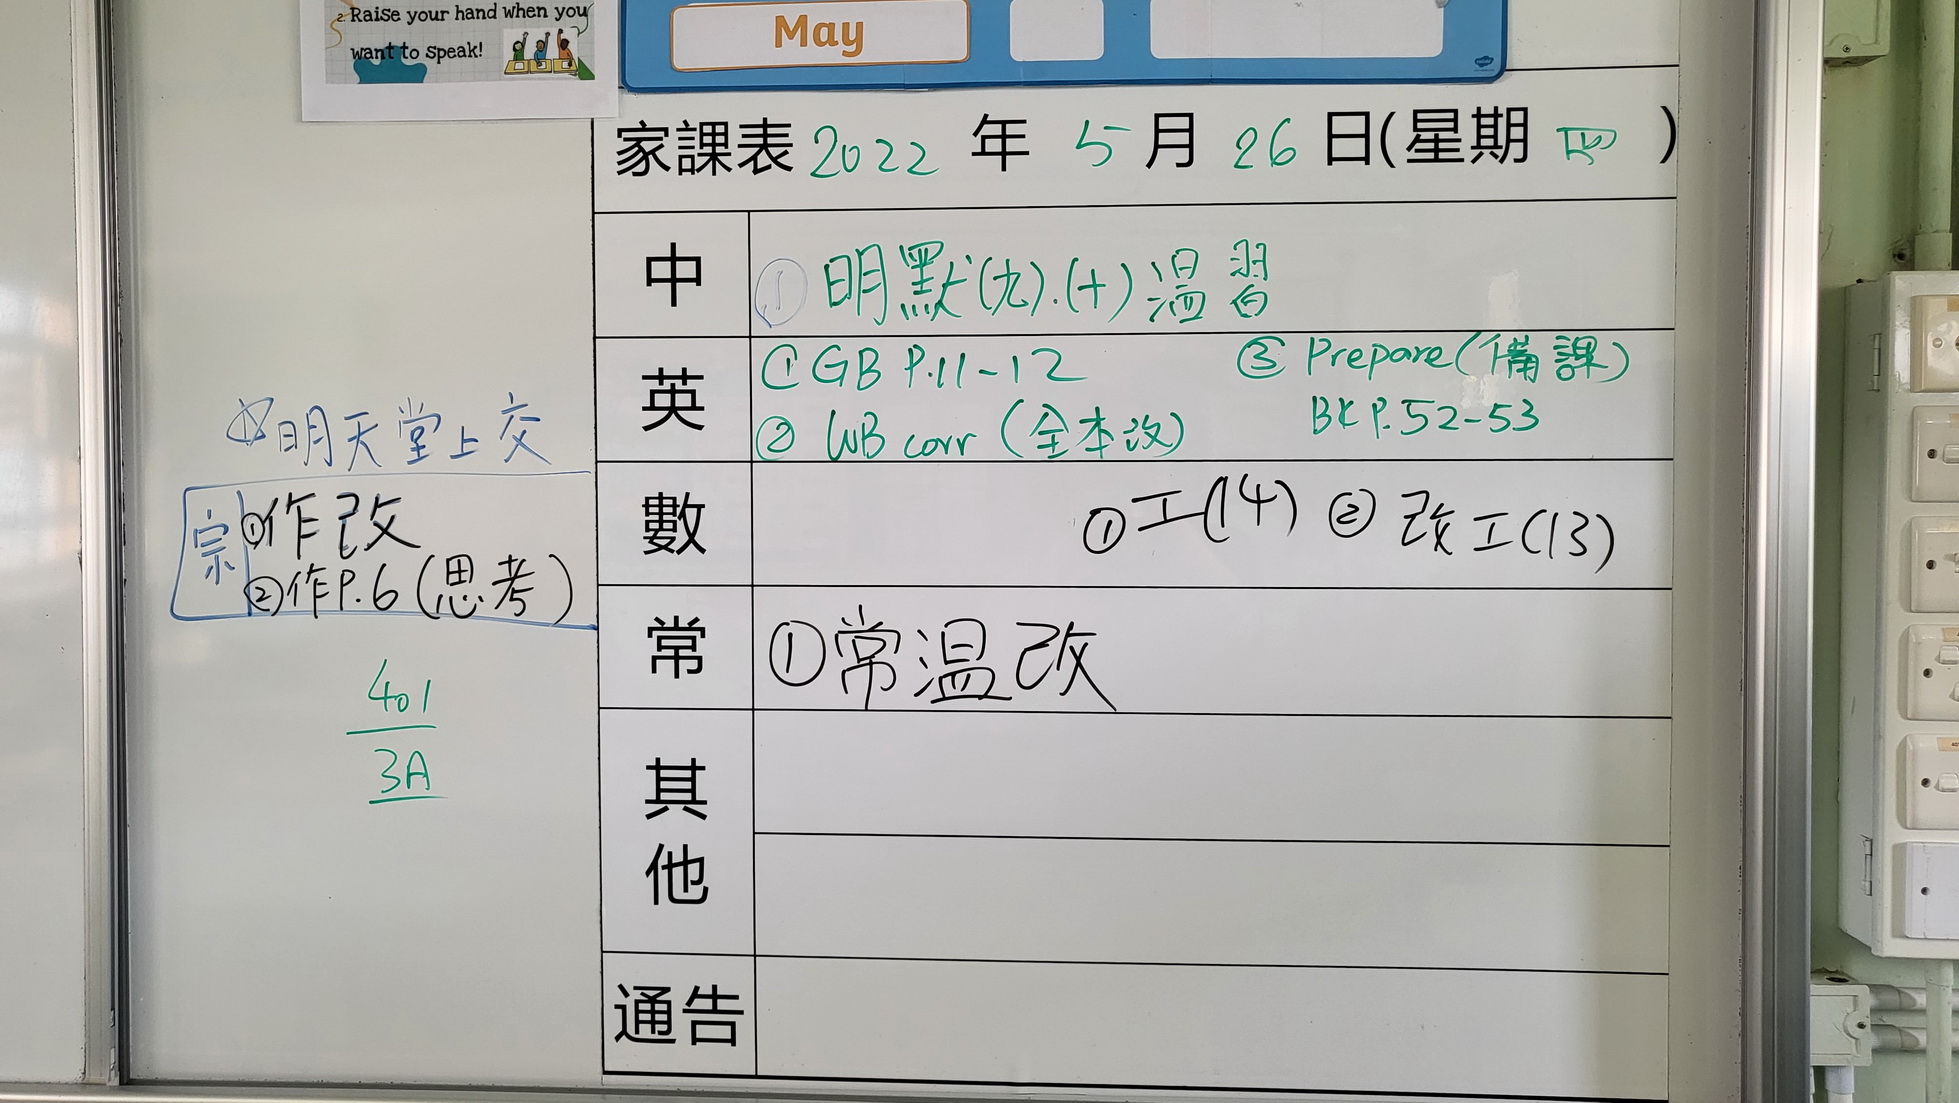 2. Raise your hand when you
want to speak!
May
家課表 2022 年 5 月 26 日(星期 四 )
中 ① 明默(九).(十)溫習
英 ① GB P.11-12 ③ Prepare(備課)
② WB corr (全本改) BK P.52-53
數 ① 工(14) ② 改工(13)
常 ① 常溫改
其他
通告
明天堂上交
宗 ① 作改
② 作P.6 (思考)
401
3A